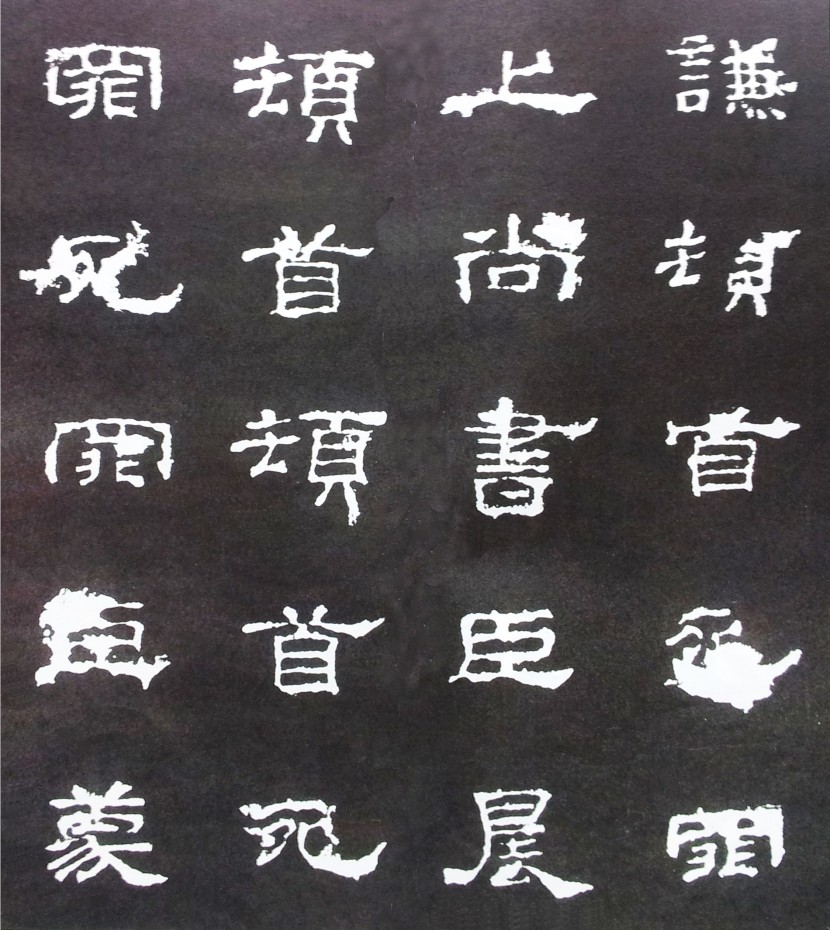 謙頓首死罪
上尚書臣晨
頓首頓首死
罪死罪臣蒙